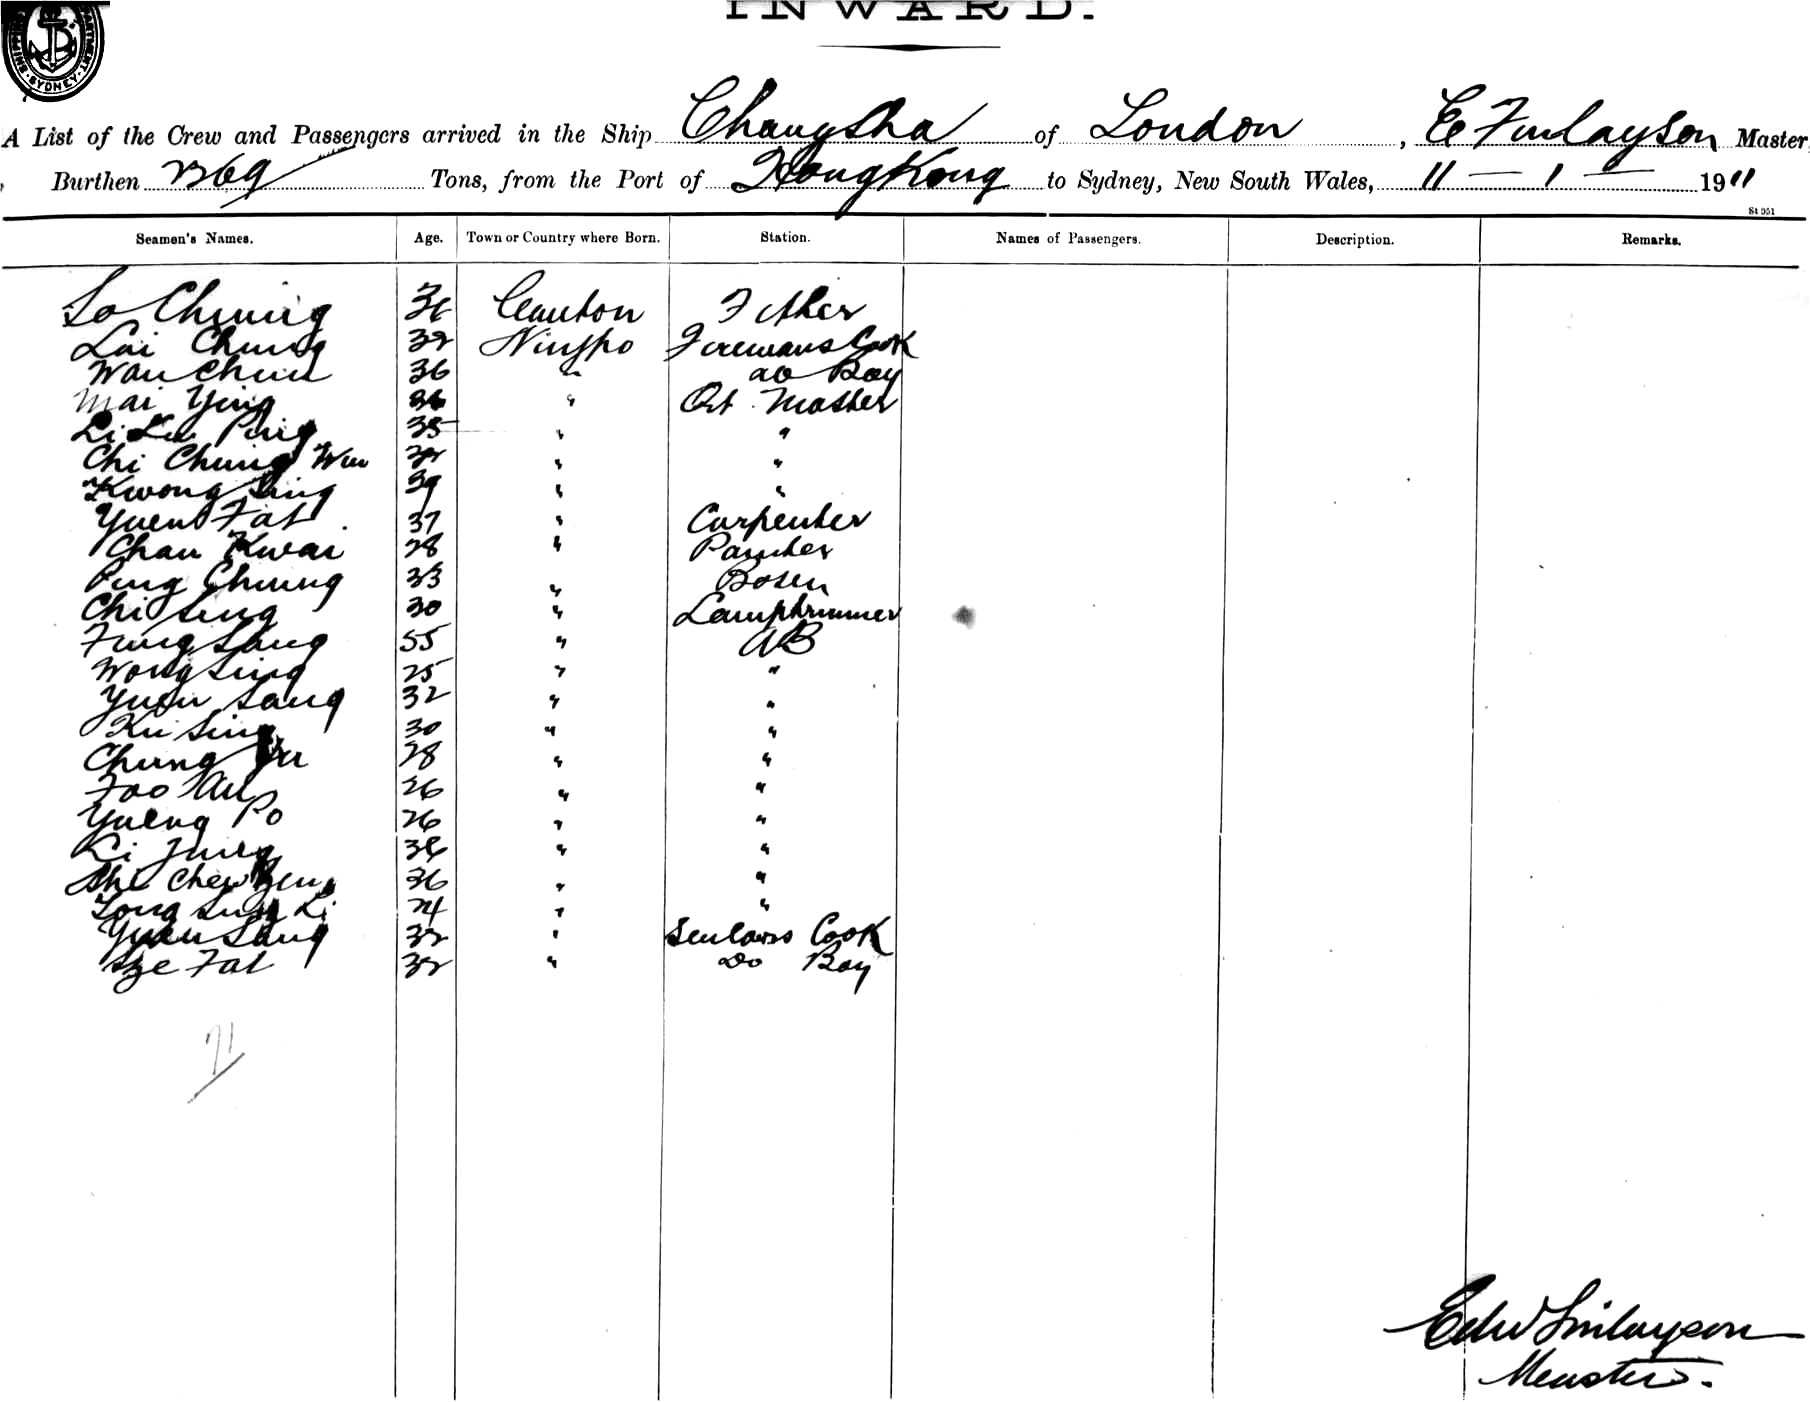 INWARD.
SYDNEY
A List of the Crew and Passengers arrived in the Ship Changsha of London, E Finlayson Master
Burthen 2269 Tons, from the Port of HongKong to Sydney, New South Wales, 11 - 1 - 1911
St 051
Seamen's Names. Age. Town or Country where Born. Station. Names of Passengers. Description. Remarks.
So Chung 36 Canton Fitter
Lai Chung 32 Ningpo Firemans Cook
Wan Chun 36 " do Boy
Mai Ying 36 " Qt. Master
Li Lu Ping 35 " "
Chi Chung Wan 32 " "
Kwong Sing 39 " "
Yuen Fat 37 " Carpenter
Chan Kwai 28 " Painter
Ping Chung 33 " Bosen
Chi Sing 30 " Lamptrimmer
Fung Sang 55 " AB
Wong Sing 25 " "
Yuen Sang 32 " "
Ku Sing 30 " "
Chung 28 " "
Foo 26 " "
Yueng Po 26 " "
Li 36 " "
Chew 36 " "
Li 24 " "
Yuen Sang 32 " Sailors Cook
Sze Fat 32 " Do Boy
21
Edw Finlayson
Master.